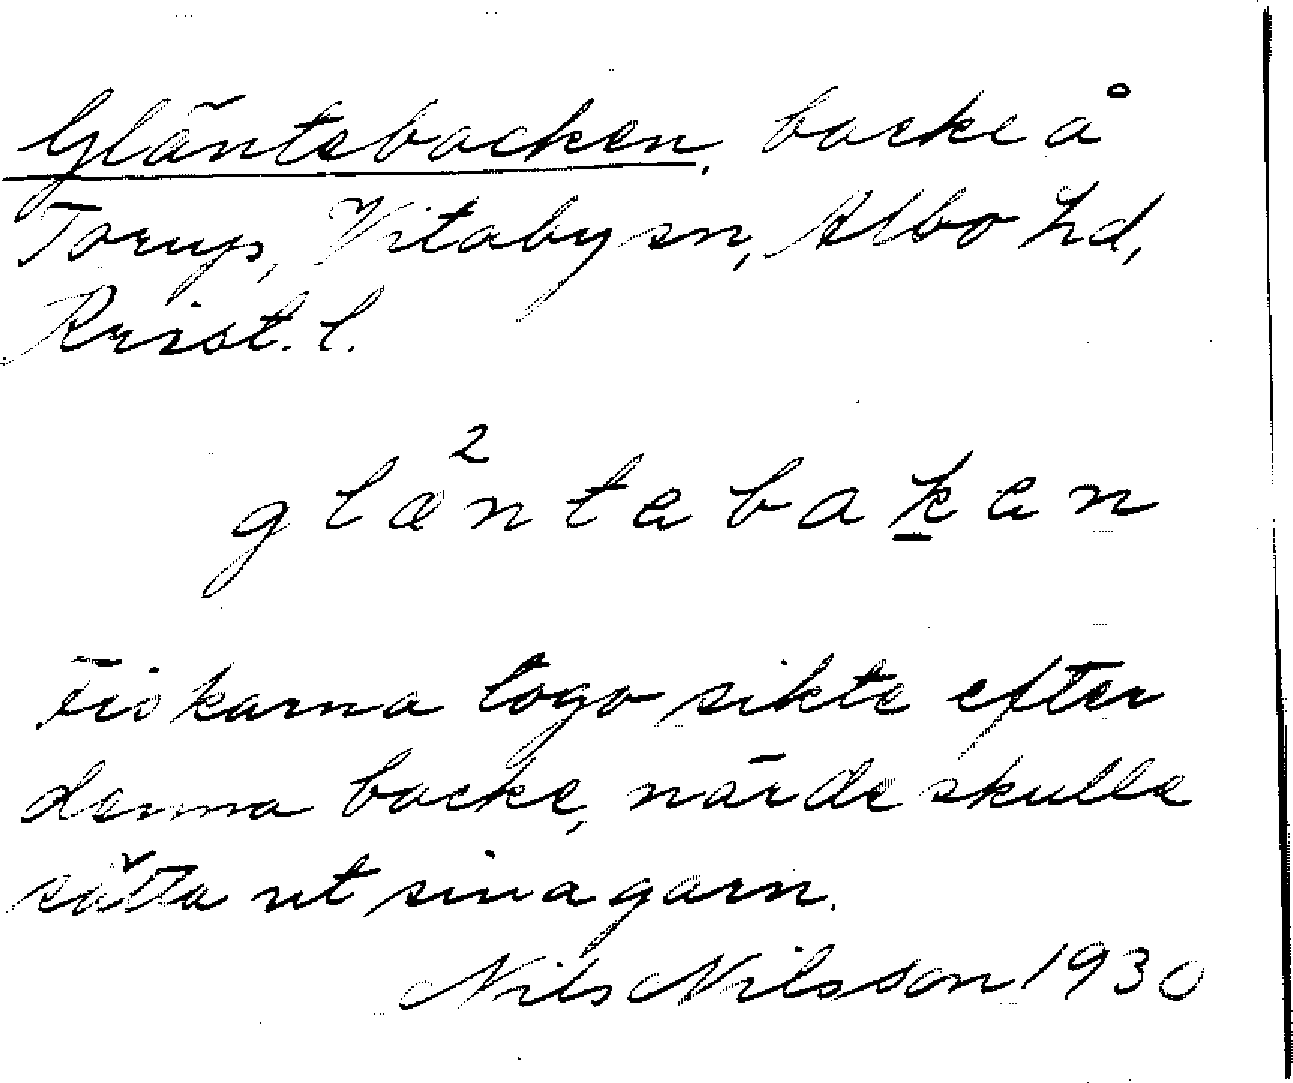 Gläntebacken, backe å
Torup, Vitaby sn, Albo hd,
Krist. l.
2
glæntebaken
Fiskarna togo sikte efter
denna backe, när de skulle
sätta ut sina garn.
Nils Nilsson 1930